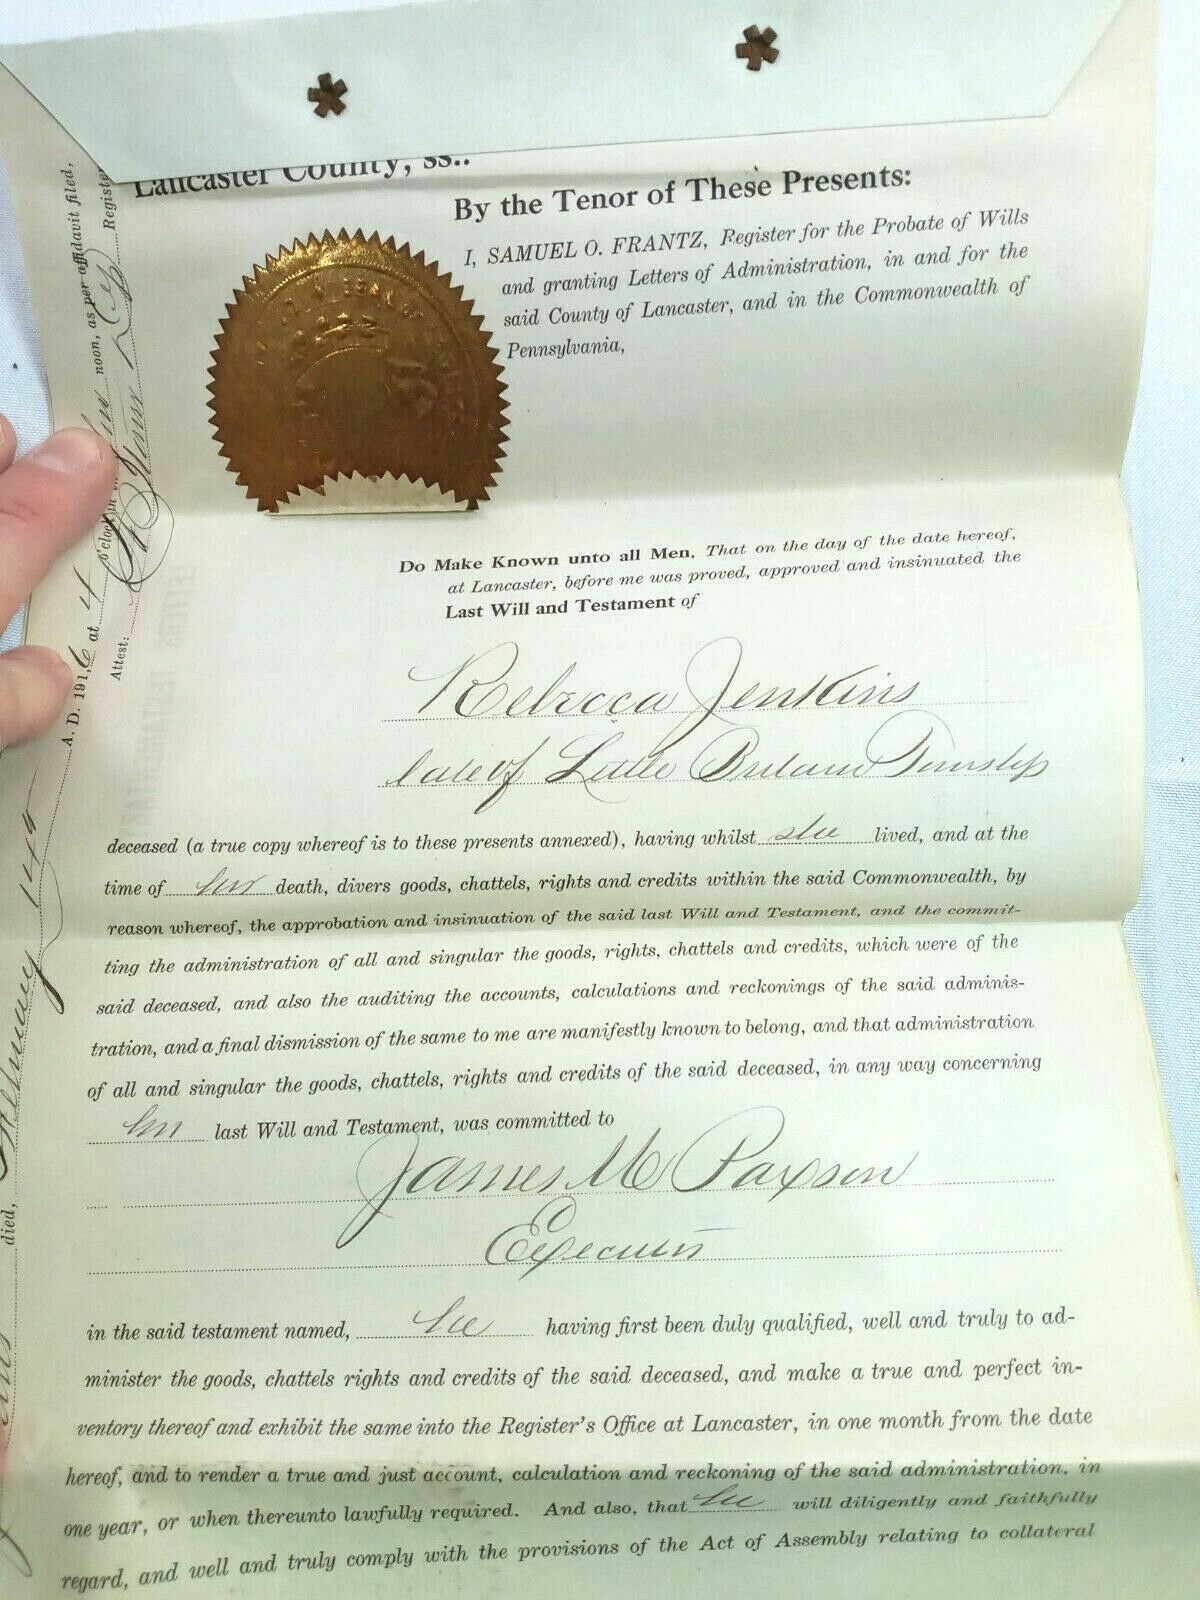 Lancaster County, ss..
By the Tenor of These Presents:
I, SAMUEL O. FRANTZ, Register for the Probate of Wills
and granting Letters of Administration, in and for the
said County of Lancaster, and in the Commonwealth of
Pennsylvania,
Do Make Known unto all Men, That on the day of the date hereof,
at Lancaster, before me was proved, approved and insinuated the
Last Will and Testament of
Rebecca Jenkins
late of Little Britain Township
deceased (a true copy whereof is to these presents annexed), having whilst she lived, and at the
time of her death, divers goods, chattels, rights and credits within the said Commonwealth, by
reason whereof, the approbation and insinuation of the said last Will and Testament, and the commit-
ting the administration of all and singular the goods, rights, chattels and credits, which were of the
said deceased, and also the auditing the accounts, calculations and reckonings of the said adminis-
tration, and a final dismission of the same to me are manifestly known to belong, and that administration
of all and singular the goods, chattels, rights and credits of the said deceased, in any way concerning
her last Will and Testament, was committed to
James M Paxson
Executor
in the said testament named, he having first been duly qualified, well and truly to ad-
minister the goods, chattels rights and credits of the said deceased, and make a true and perfect in-
ventory thereof and exhibit the same into the Register's Office at Lancaster, in one month from the date
hereof, and to render a true and just account, calculation and reckoning of the said administration, in
one year, or when thereunto lawfully required. And also, that he will diligently and faithfully
regard, and well and truly comply with the provisions of the Act of Assembly relating to collateral
died,
A. D. 1916 at 4 o'clock in
noon, as per affidavit filed,
Attest: Register